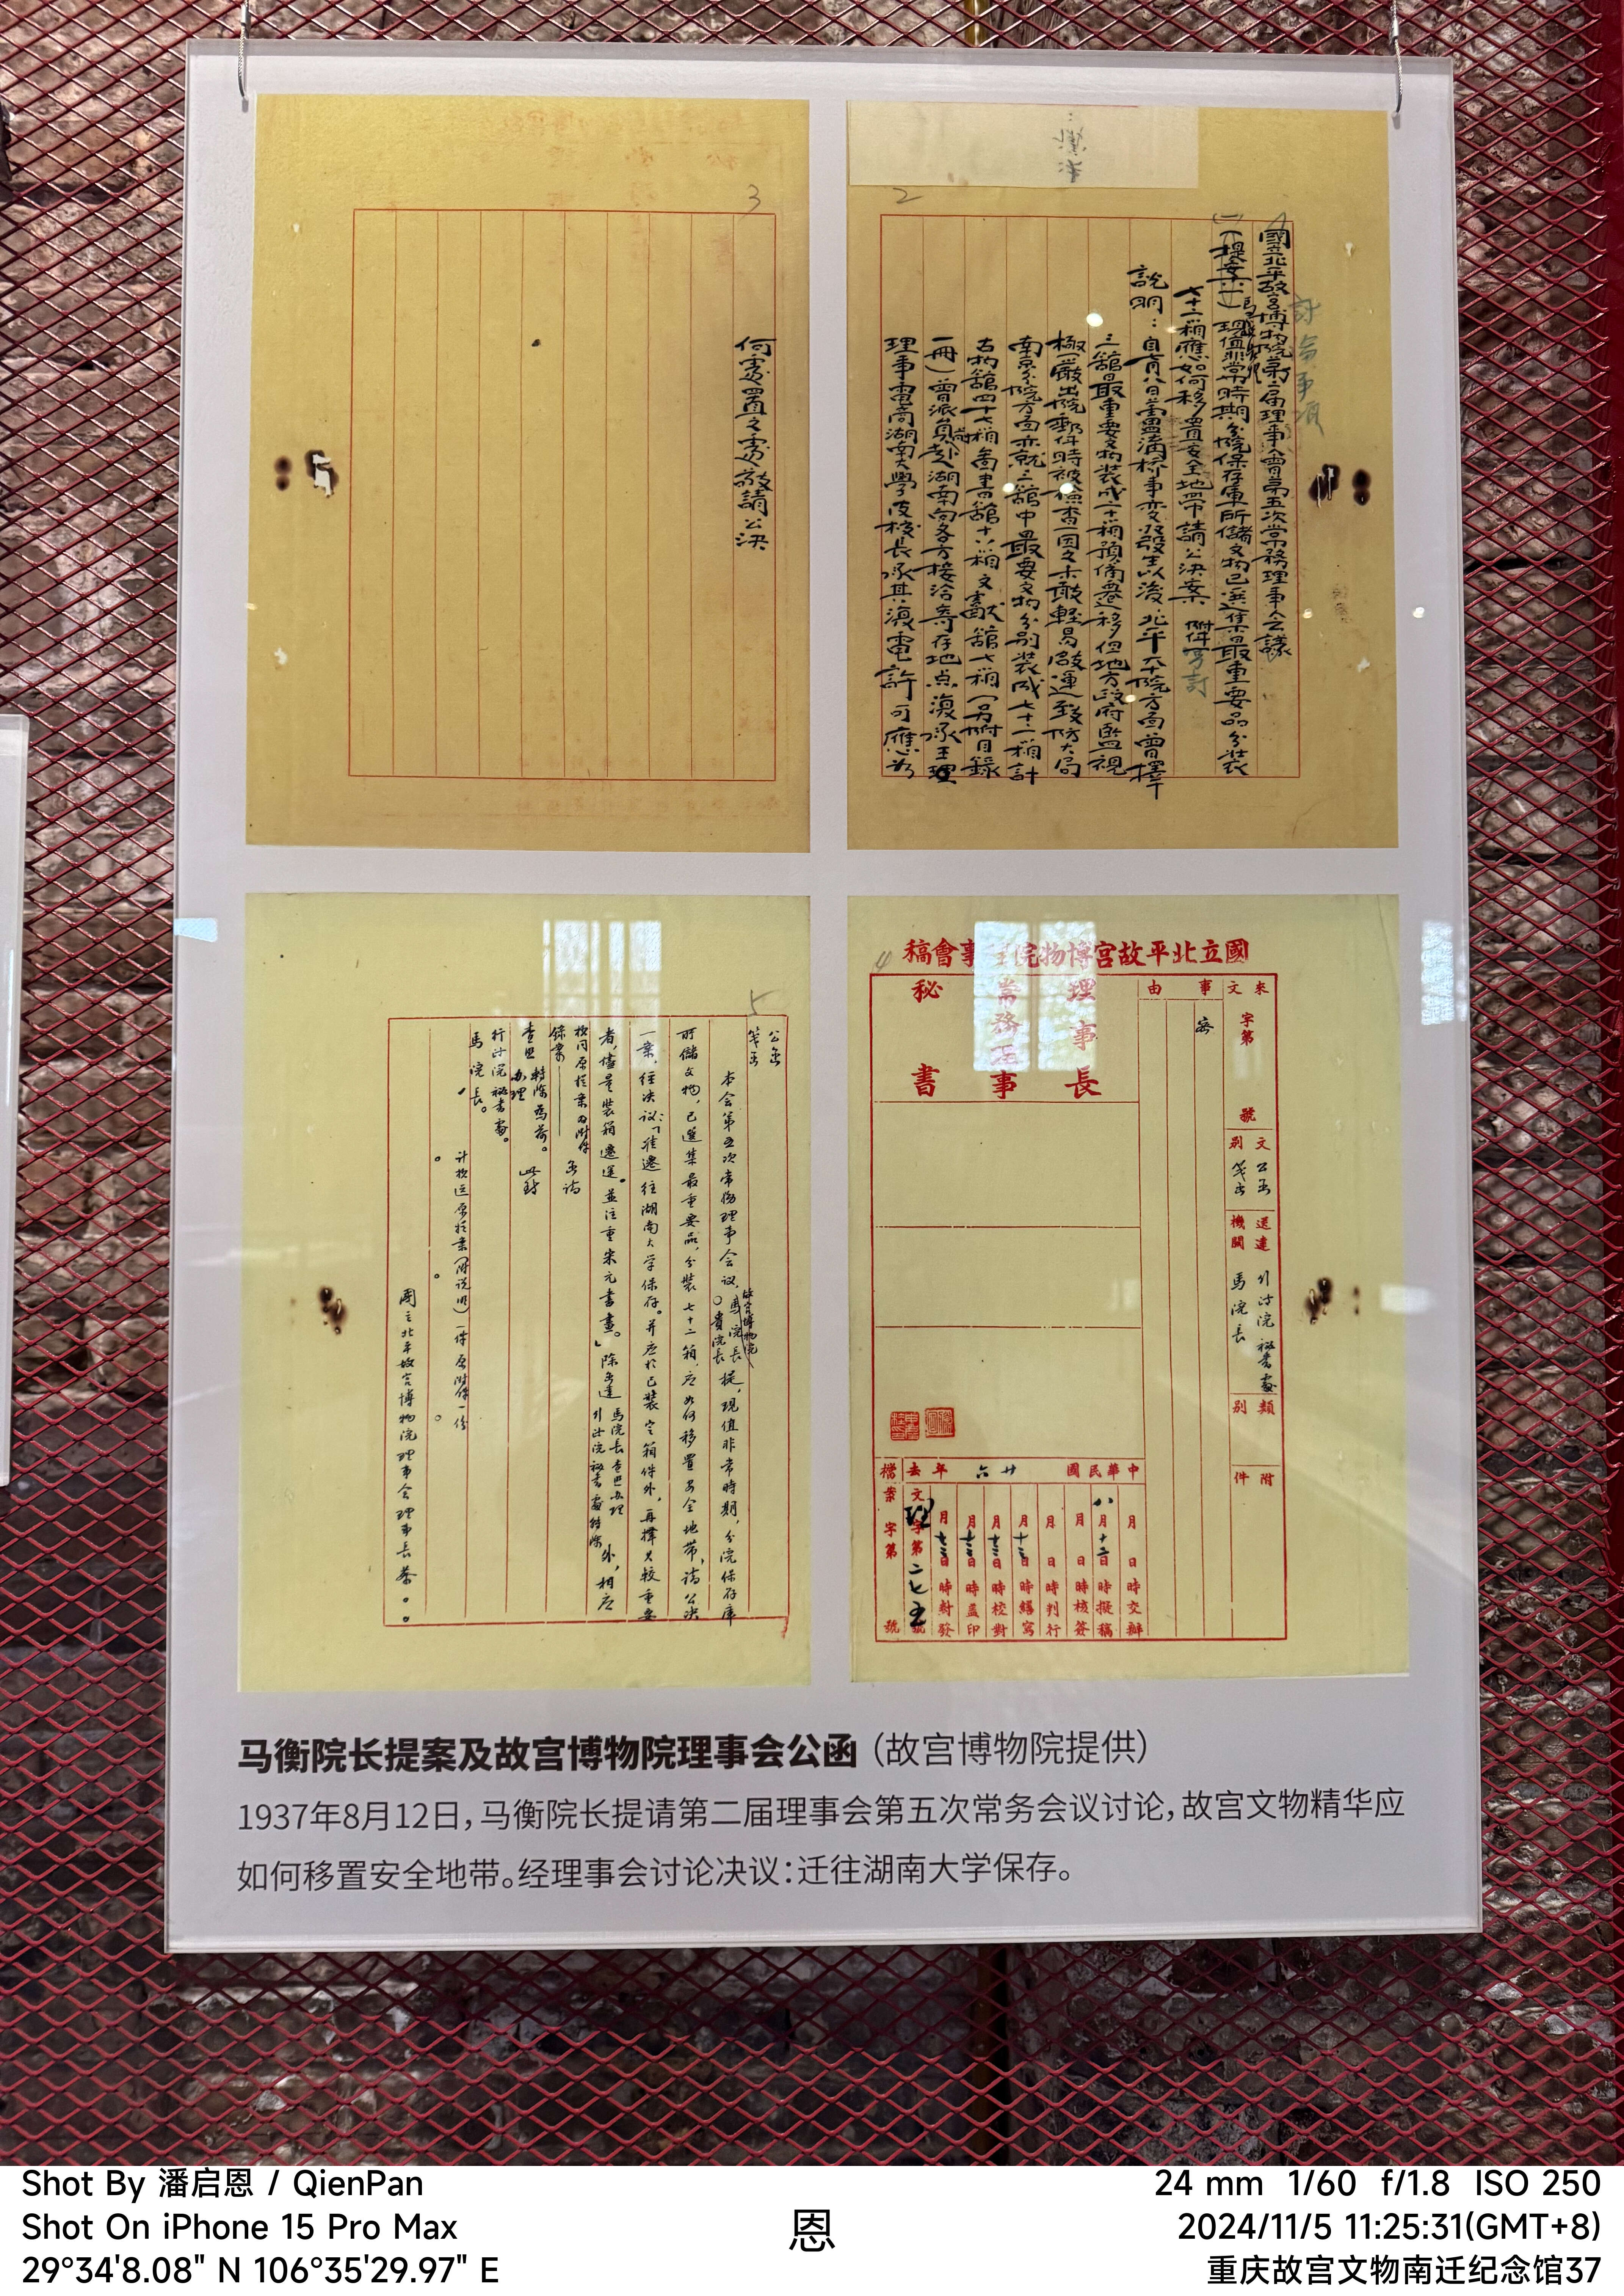 2
討論事項
國立北平故宮博物院第二届理事會第五次常務理事會議
(提案一)現值非常時期分院保存庫所儲文物已選集最重要品分裝
七十二箱應如何移置安全地帶請公決案 附件另訂
說明:自七月八日蘆溝橋事變發生以後北平本院方面曾擇
三館最重要文物裝成 箱預備遷移但地方政府監視
極嚴出院郵件時被檢查因之未敢輕易啟運致防大局
南京分院方面亦就三館中最要文物分別裝成七十二箱計
古物館四十七箱圖書館十八箱文獻館七箱(另附目錄
一冊)曾派員赴湖南向各方接洽寄存地点漢承王
理事電商湖南大學皮校長承其溴電許可應
3
何處置之處敬請公決
4
國立北平故宮博物院理事會稿
來文 字第 號
事由
函
文別 公函 箋函
送達機關 行政院秘書處 馬院長
類別
附件
理事長
常務理事
秘書
中華民國廿六年
月 日 時交辦
八月十二日 時擬稿
月 日 時核簽
月 日 時判行
月十三日 時繕寫
月十三日 時校對
月十三日 時蓋印
月十三日 時封發
去文理字第二七五號
檔案 字第 號
5
公函
箋函
本会第五次常務理事会议,故宮博物院馬院長 貴院長提,現值非常時期,分院保存庫
所儲文物,已選集最重要品,分裝七十二箱,应如何移置安全地帶,請公决
一案,经决议:「准遷往湖南大学保存。并应於已裝定箱件外,再擇其較重要
者,儘量裝箱遷運,並注重宋元書畫。」除函達 馬院長查照办理 行政院秘書處轉陳 外,相应
檢同原提案及附件 函請
錄案
查照 轉陳為荷。 此致
办理
行政院秘書處。
馬院長。
计檢送原提案(附说明)一件 原附件一份
國立北平故宮博物院理事会理事長蔡○○
马衡院长提案及故宫博物院理事会公函(故宫博物院提供)
1937年8月12日,马衡院长提请第二届理事会第五次常务会议讨论,故宫文物精华应
如何移置安全地带。经理事会讨论决议:迁往湖南大学保存。
Shot By 潘启恩 / QienPan
Shot On iPhone 15 Pro Max
29°34'8.08" N 106°35'29.97" E
恩
24 mm 1/60 f/1.8 ISO 250
2024/11/5 11:25:31(GMT+8)
重庆故宫文物南迁纪念馆37